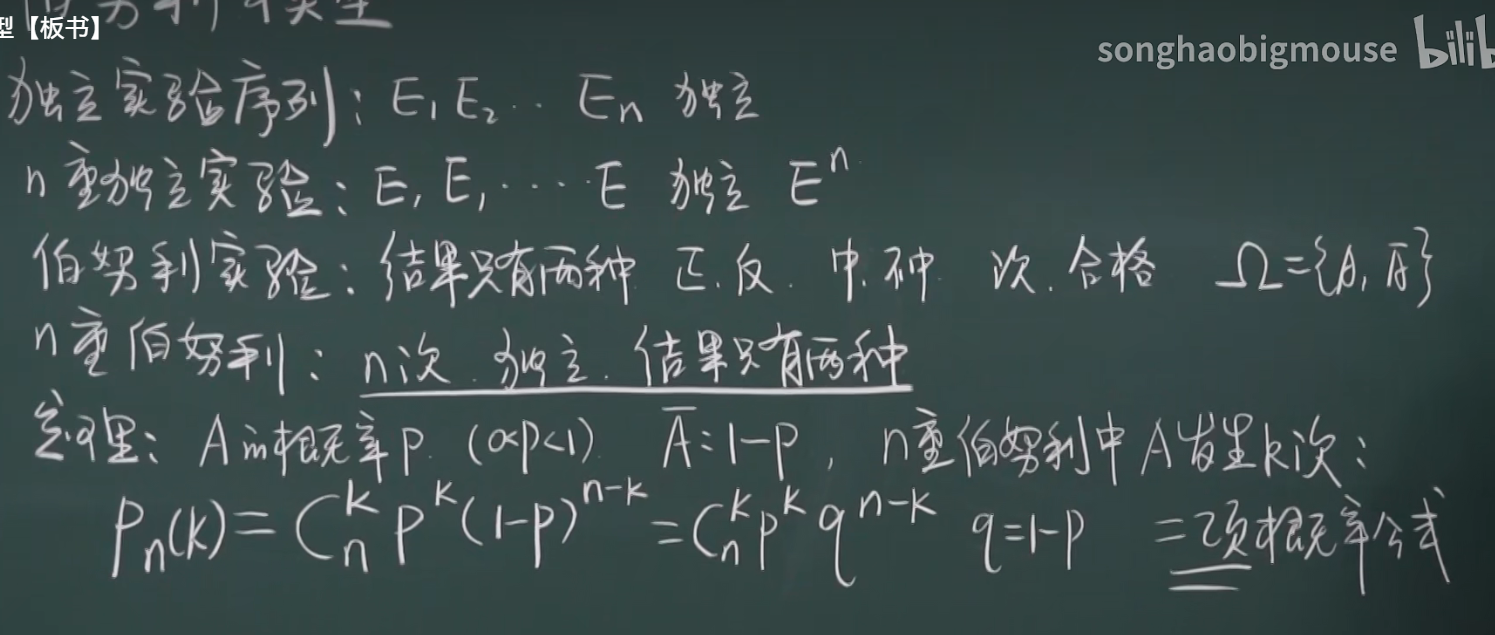 伯努利模型
型【板书】
songhaobigmouse bilib
独立实验序列: E₁ E₂ ‥ Eₙ 独立
n重独立实验: E, E, ‥‥ E 独立 Eⁿ
伯努利实验: 结果只有两种 正.反. 中.不中 次.合格 Ω={A, A̅}
n重伯努利: n次.独立.结果只有两种
定理: A的概率P (0<P<1) A̅: 1-P, n重伯努利中A发生k次:
Pₙ(k) = Cₙᵏ Pᵏ (1-P)ⁿ⁻ᵏ = Cₙᵏ Pᵏ qⁿ⁻ᵏ q=1-P 二项概率公式